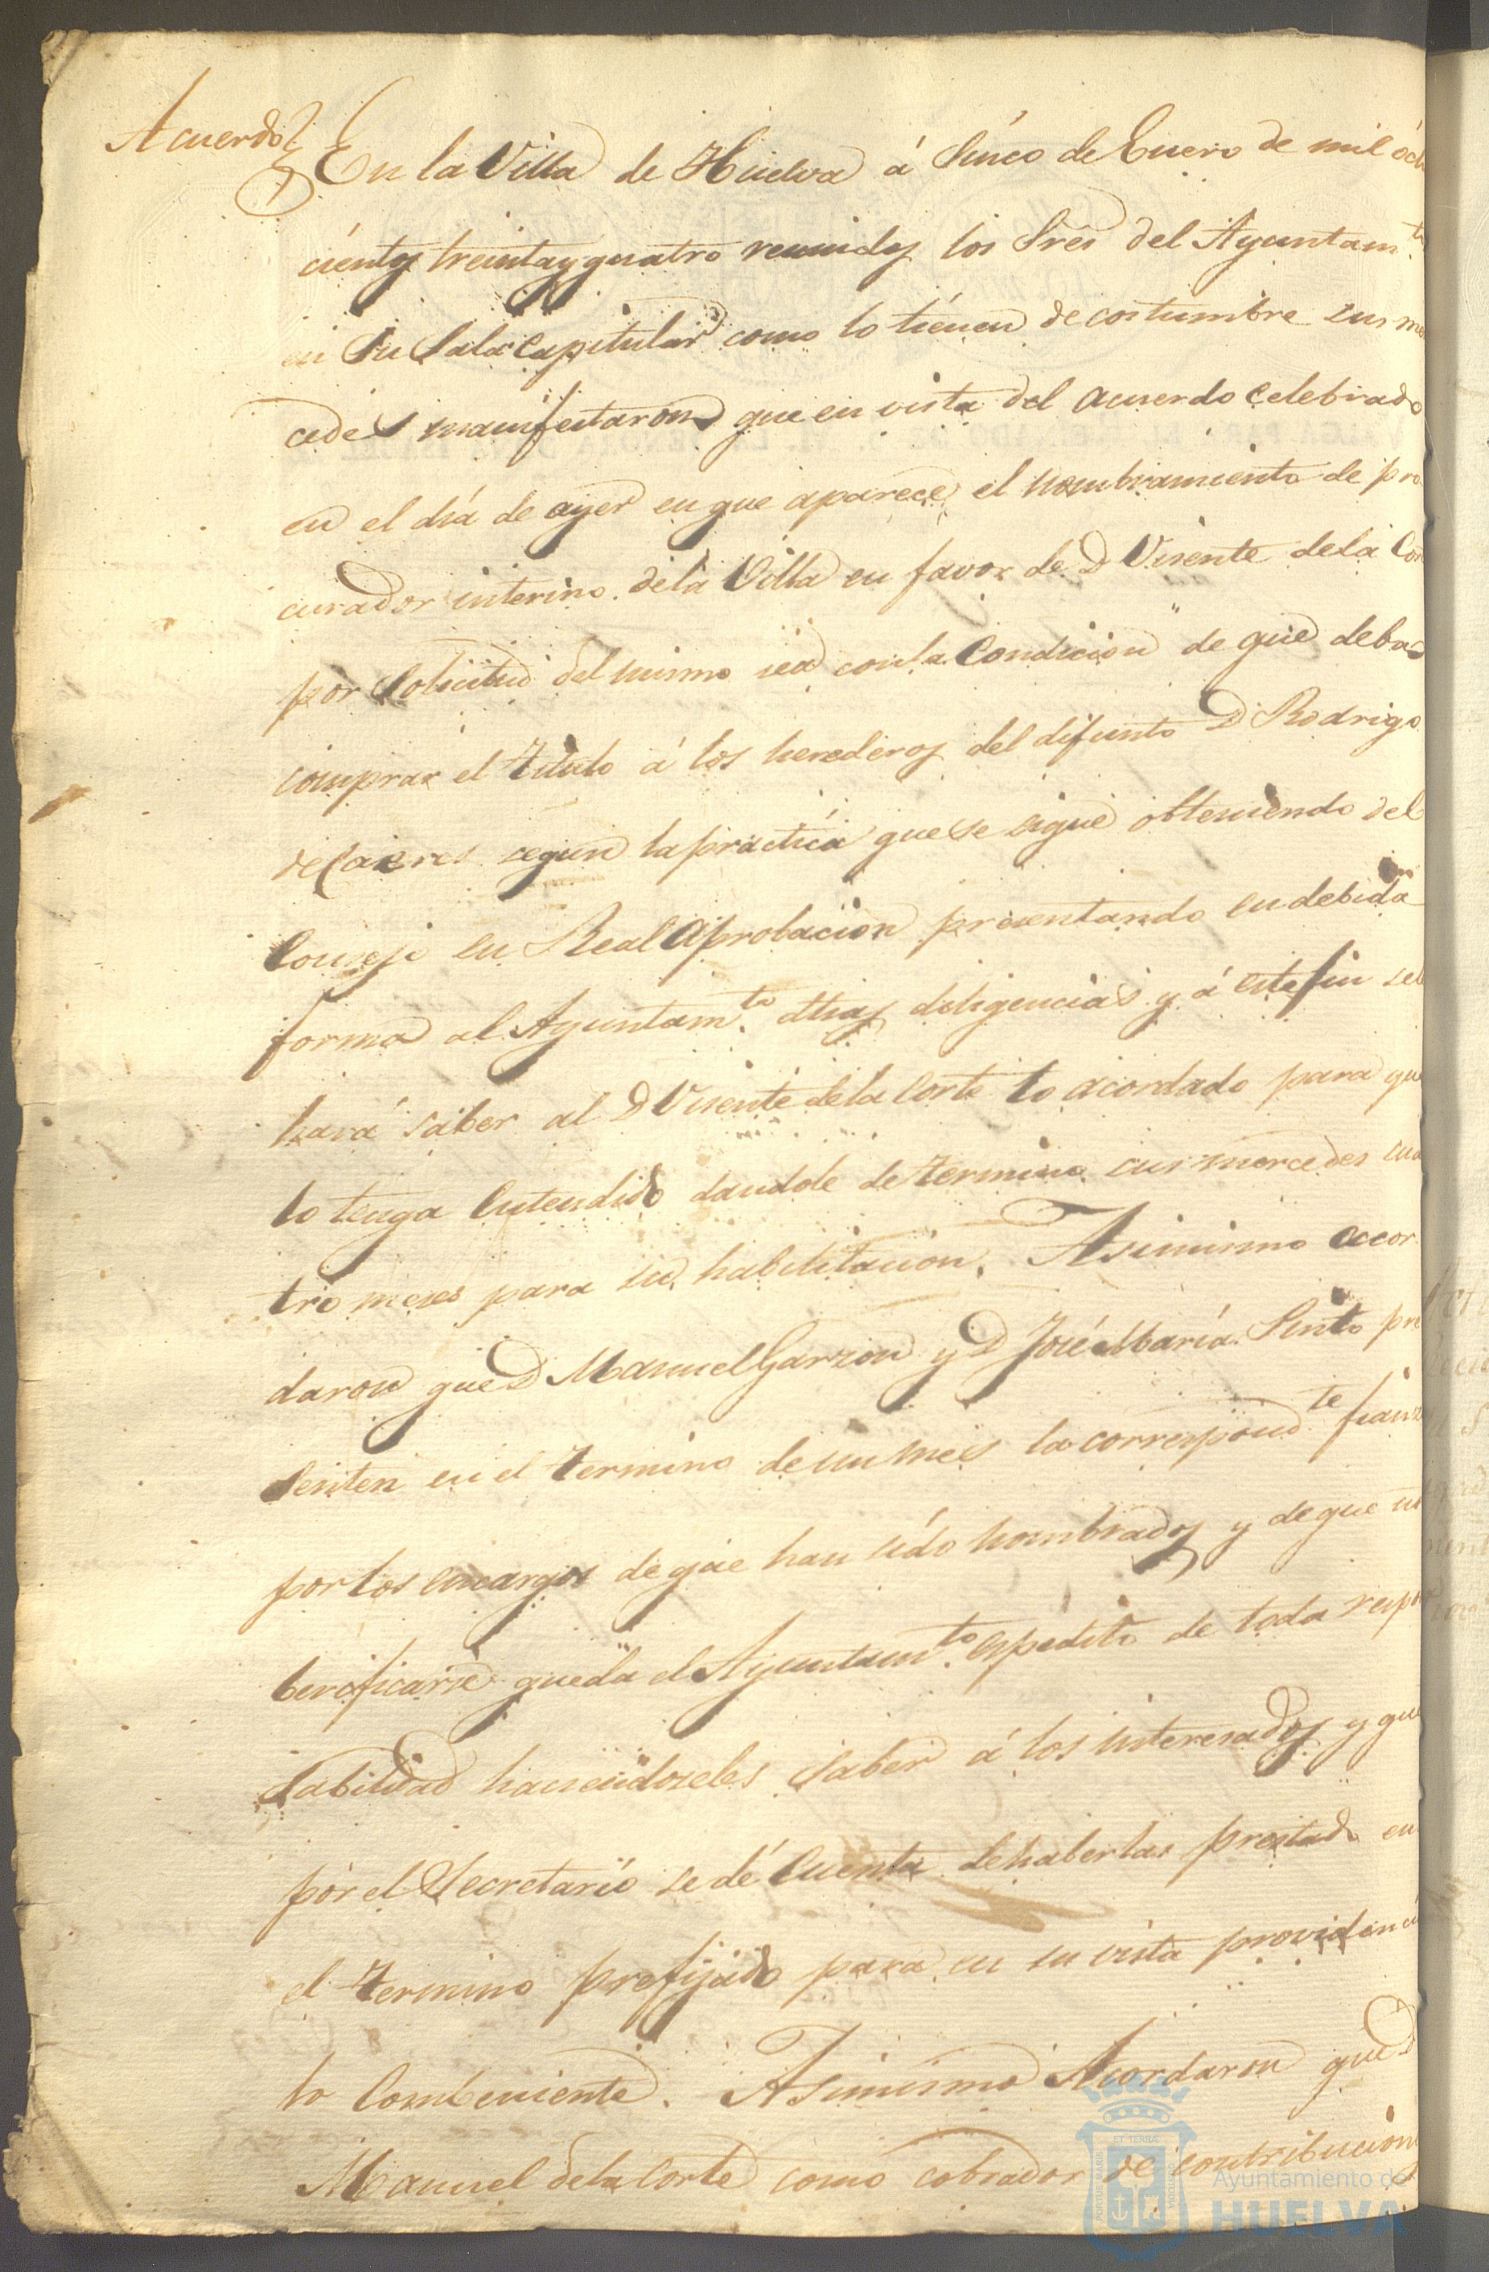 Acuerdo
En la Villa de Huelva á Sinco de Enero de mil ócho
cientos treinta y quatro reunidos los Sres del Ayuntamto
en su Sala Capitular como lo tienen de costumbre sus mer
cedes manifestaron que en vista del acuerdo celebrado
en el día de ayer en que aparece el nombramiento de pro
curador interino de la Villa en favor de D Visente de la Cor
por solicitud del mismo sea con la Condicion de que deba
comprar el Titulo á los herederos del difunto D Rodrigo
de Caceres segun la práctica que se sigue obteniendo del
Consejo su Real aprobacion presentando en debida
forma al Ayuntamto dhas diligencias y á este fin se
hará saber al D Visente de la Corte lo acordado para que
lo tenga entendido dandole de termino sus mercedes cua
tro meses para su habilitacion. Asimismo acor
daron que D Manuel Garzon y D José Maria Pinto pre
senten en el termino de un mes la correspondte fianza
por los encargos de que han sido nombrados y de que no
berificarse queda el Ayuntamto espedito de toda respon
sabilidad haciendoseles saber á los interesados y que
por el Secretario se dé Cuenta de haberlas prestado en
el termino prefijado para en su vista providencia
lo Combeniente. Asimismo Acordaron que D
Manuel de la Corte como cobrador de contribuciones
Ayuntamiento de
HUELVA